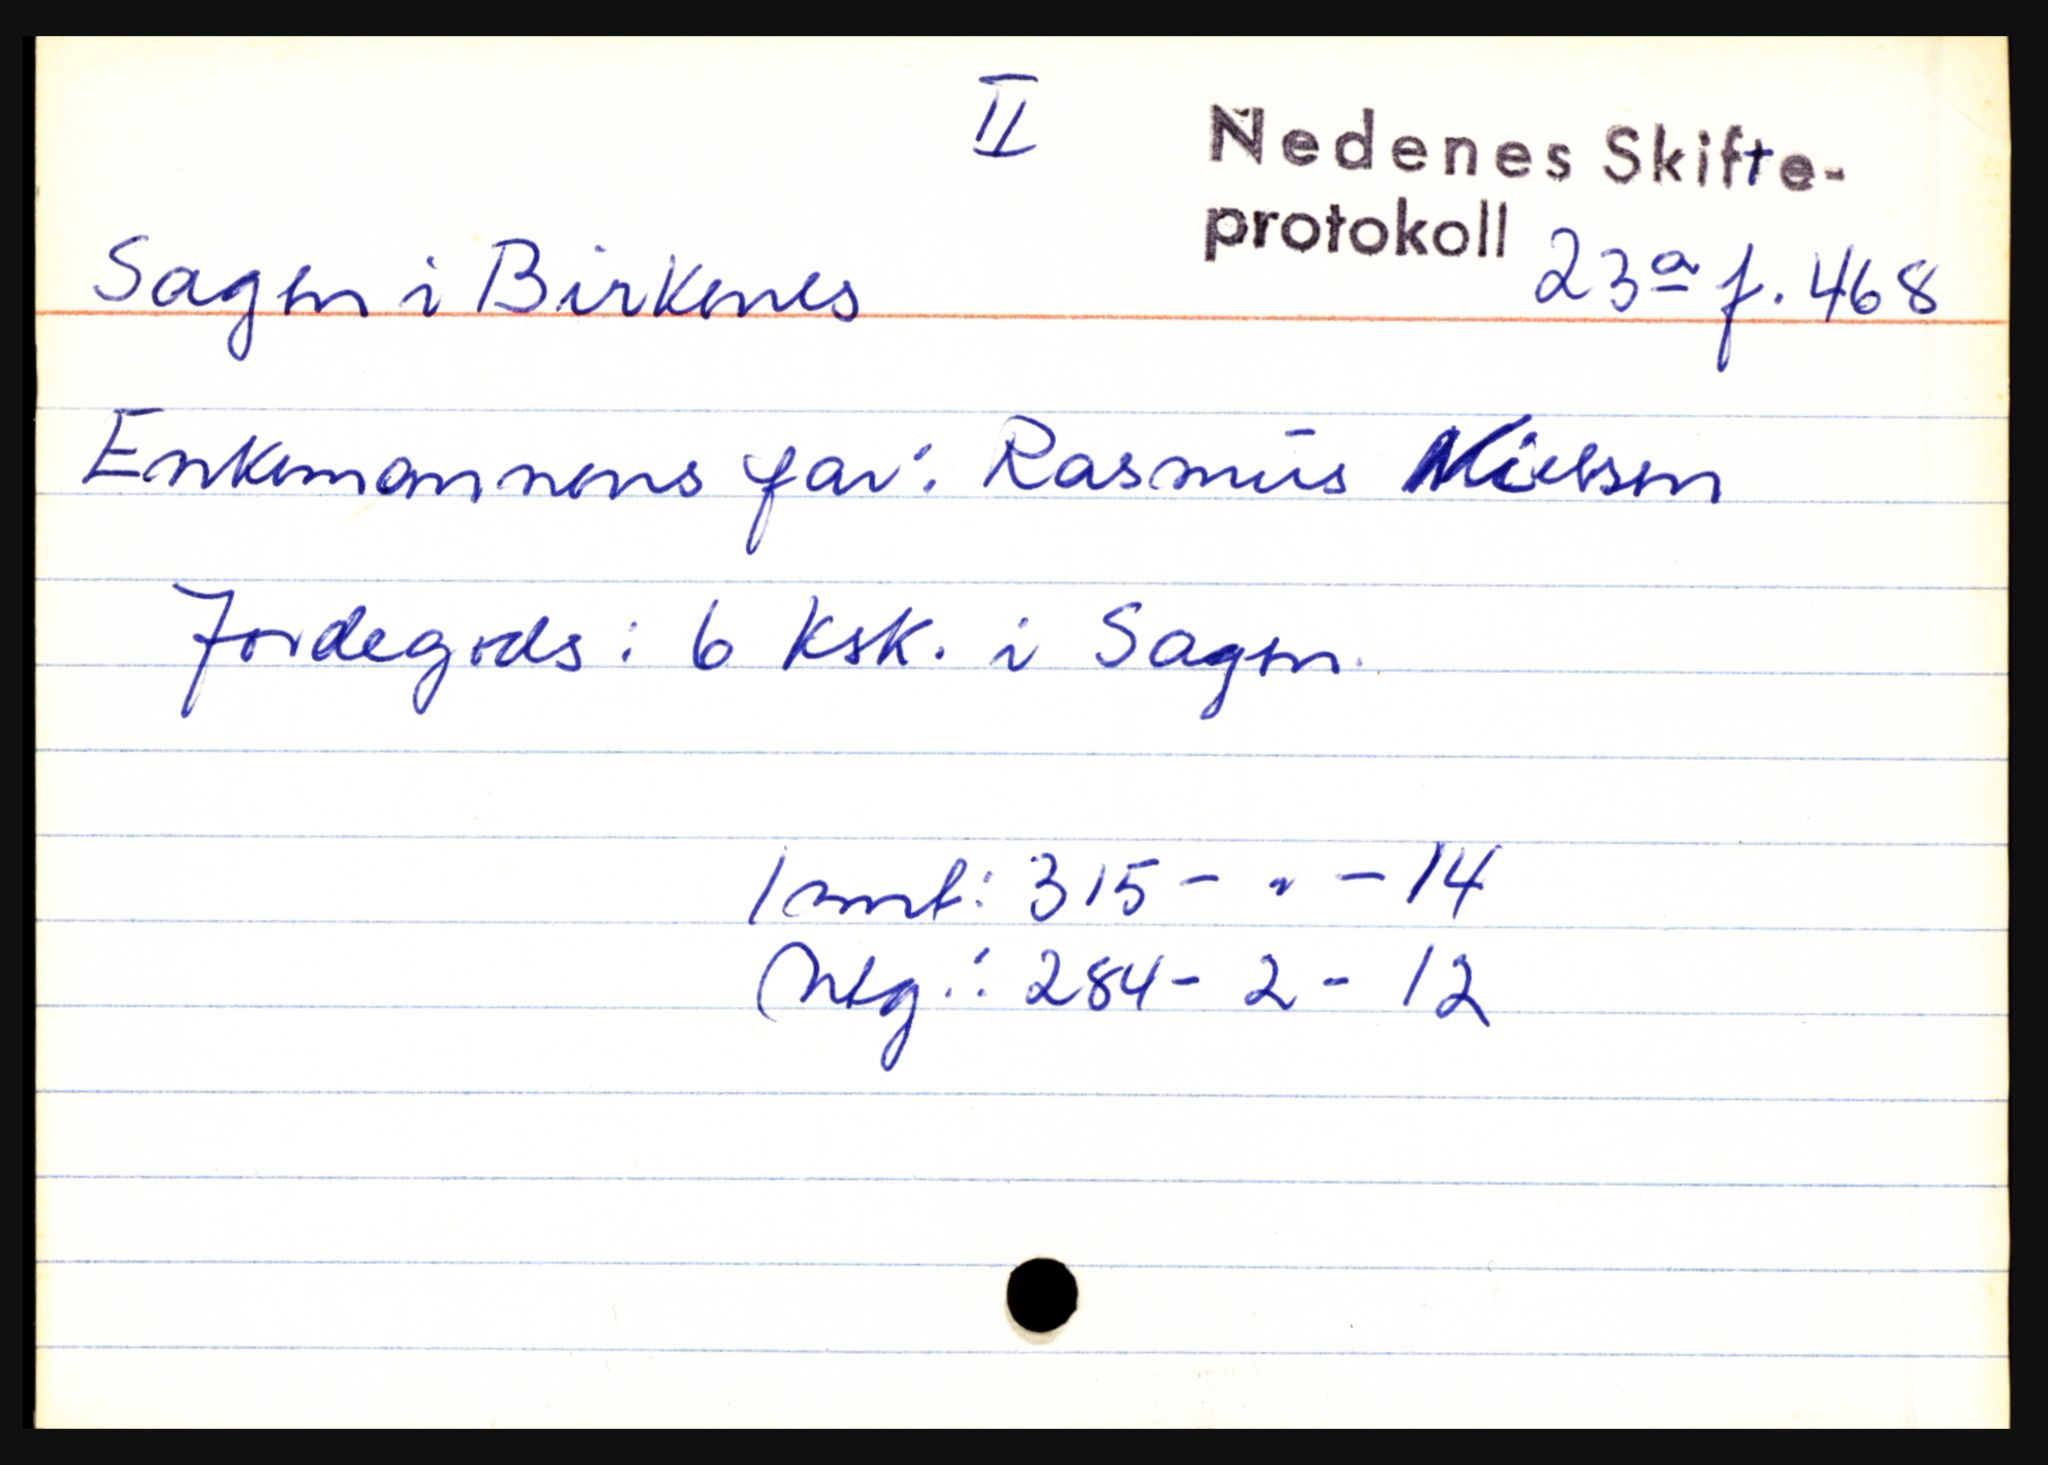 II
Nedenes Skifte-
protokoll 23a f. 468
Sagen i Birkenes
Enkemannens far: Rasmus Nielsen
Jordegods: 6 ksk. i Sagen.
1 smt: 315 - " - 14
Ntg.: 284 - 2 - 12